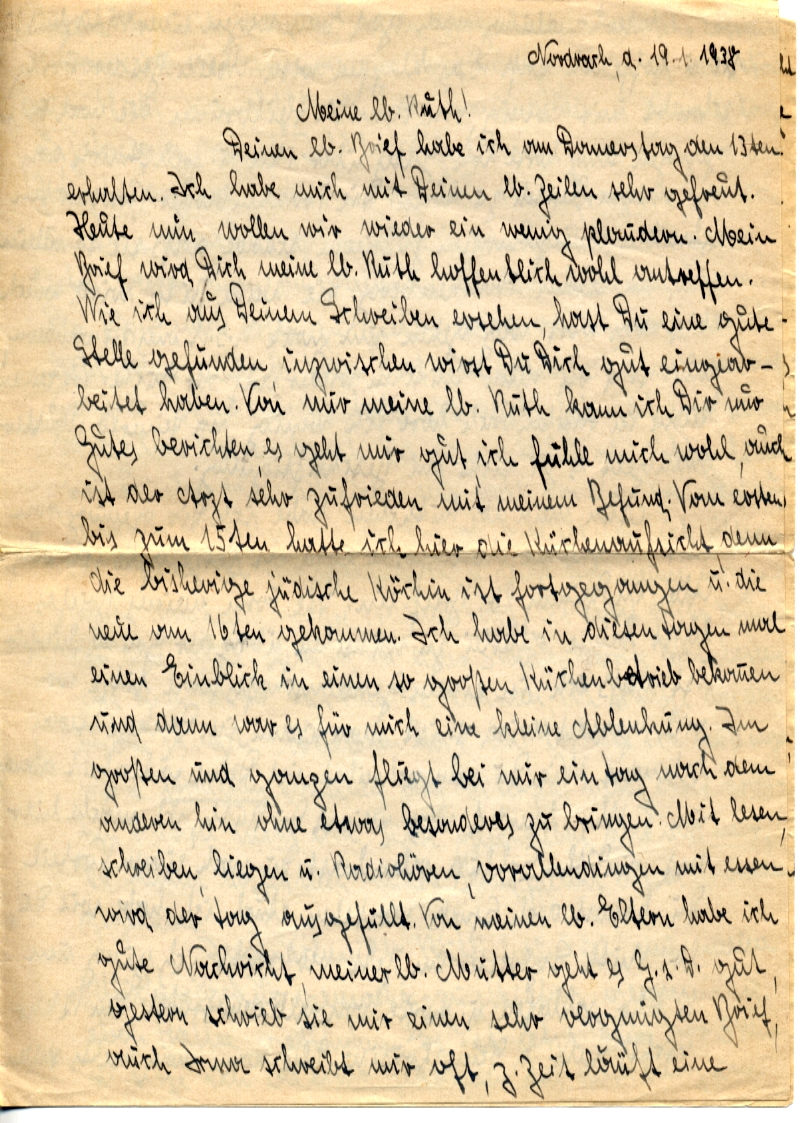 Nordrach, d. 19.1.1938
Meine lb. Ruth!
Deinen lb. Brief habe ich am Donnerstag den 13ten
erhalten. Ich habe mich mit Deinen lb. Zeilen sehr gefreut.
Heute nun wollen wir wieder ein wenig plaudern. Mein
Brief wird Dich meine lb. Ruth hoffentlich wohl antreffen.
Wie ich aus Deinem Schreiben ersehen, hast Du eine gute
Stelle gefunden inzwischen wirst Du Dich gut eingear-
beitet haben. Von mir meine lb. Ruth kann ich Dir nur
Gutes berichten, es geht mir gut ich fühle mich wohl, auch
ist der Arzt sehr zufrieden mit meinem Befund. Vom ersten
bis zum 15ten hatte ich hier die Küchenaufsicht, denn
die bisherige jüdische Köchin ist fortgegangen u. die
neue am 16ten gekommen. Ich habe in diesen tagen mal
einen Einblick in einen so großen Küchenbetrieb bekommen
und dann war es für mich eine kleine Ablenkung. Im
großen und ganzen fliegt bei mir ein tag nach dem
anderen hin ohne etwas besonderes zu bringen. Mit lesen,
schreiben, liegen u. Radiohören, vorallendingen mit essen
wird der tag ausgefüllt. Von meinen lb. Eltern habe ich
gute Nachricht, meiner lb. Mutter geht es G.s.D. gut,
gestern schrieb sie mir einen sehr vergnügten Brief,
auch Irma schreibt mir oft, z. Zeit läuft eine